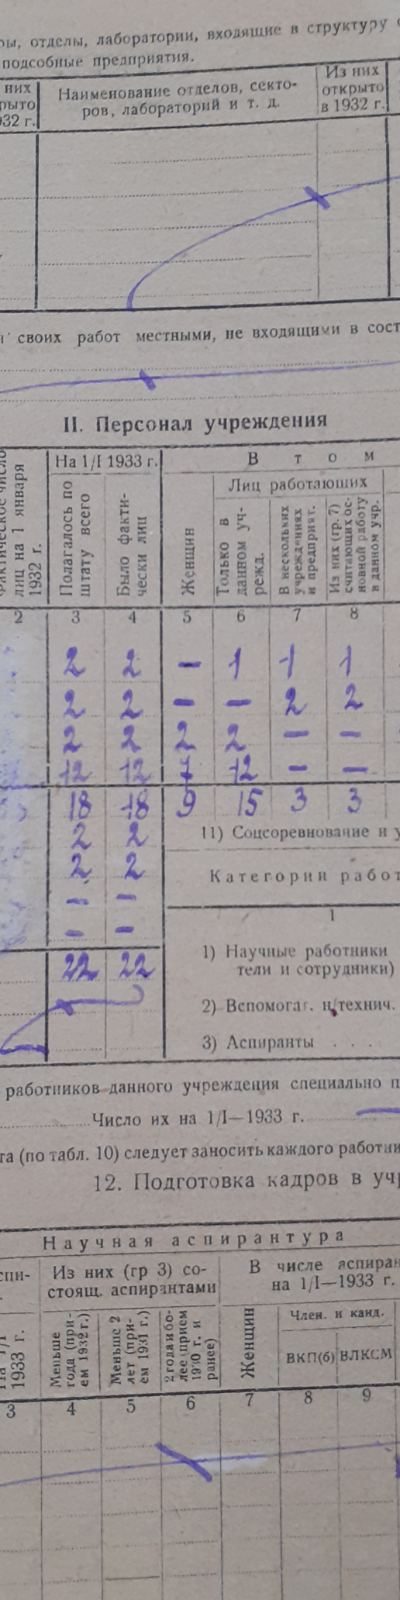 ры, отделы, лаборатории, входящие в структуру
подсобные предприятия.
них
рыто
932 г.
Наименование отделов, секто-
ров, лабораторий и т. д.
Из них
открыто
в 1932 г.
своих работ местными, не входящими в сост
II. Персонал учреждения
фактическое число
лиц на 1 января
1932 г.
На 1/I 1933 г.
Полагалось по
штату всего
Было факти-
чески лиц
В том
Женщин
Лиц работающих
Только в
данном уч-
режд.
В нескольких
учреждениях
и предприят.
Из них (гр. 7)
считающих ос-
новной работу
в данном учр.
2 3 4 5 6 7 8
2 2 — 1 1 1
2 2 — — 2 2
2 2 2 2 — —
12 12 7 12 — —
18 18 9 15 3 3
2 2
2 2
— —
— —
22 22
11) Соцсоревнование и у
Категории работ
1
1) Научные работники
тели и сотрудники)
2) Вспомогат. и технич.
3) Аспиранты . . .
работников данного учреждения специально п
Число их на 1/I—1933 г.
та (по табл. 10) следует заносить каждого работни
12. Подготовка кадров в уч
Научная аспирантура
спи-
1933 г.
Из них (гр 3) со-
стоящ. аспирантами
Меньше
года (при-
ем 1932 г.)
Меньше 2
лет (при-
ем 1931 г.)
2 года и бо-
лее (прием
1930 г. и
ранее)
В числе аспиран
на 1/I—1933 г.
Женщин
Член. и канд.
ВКП(б)
ВЛКСМ
3 4 5 6 7 8 9